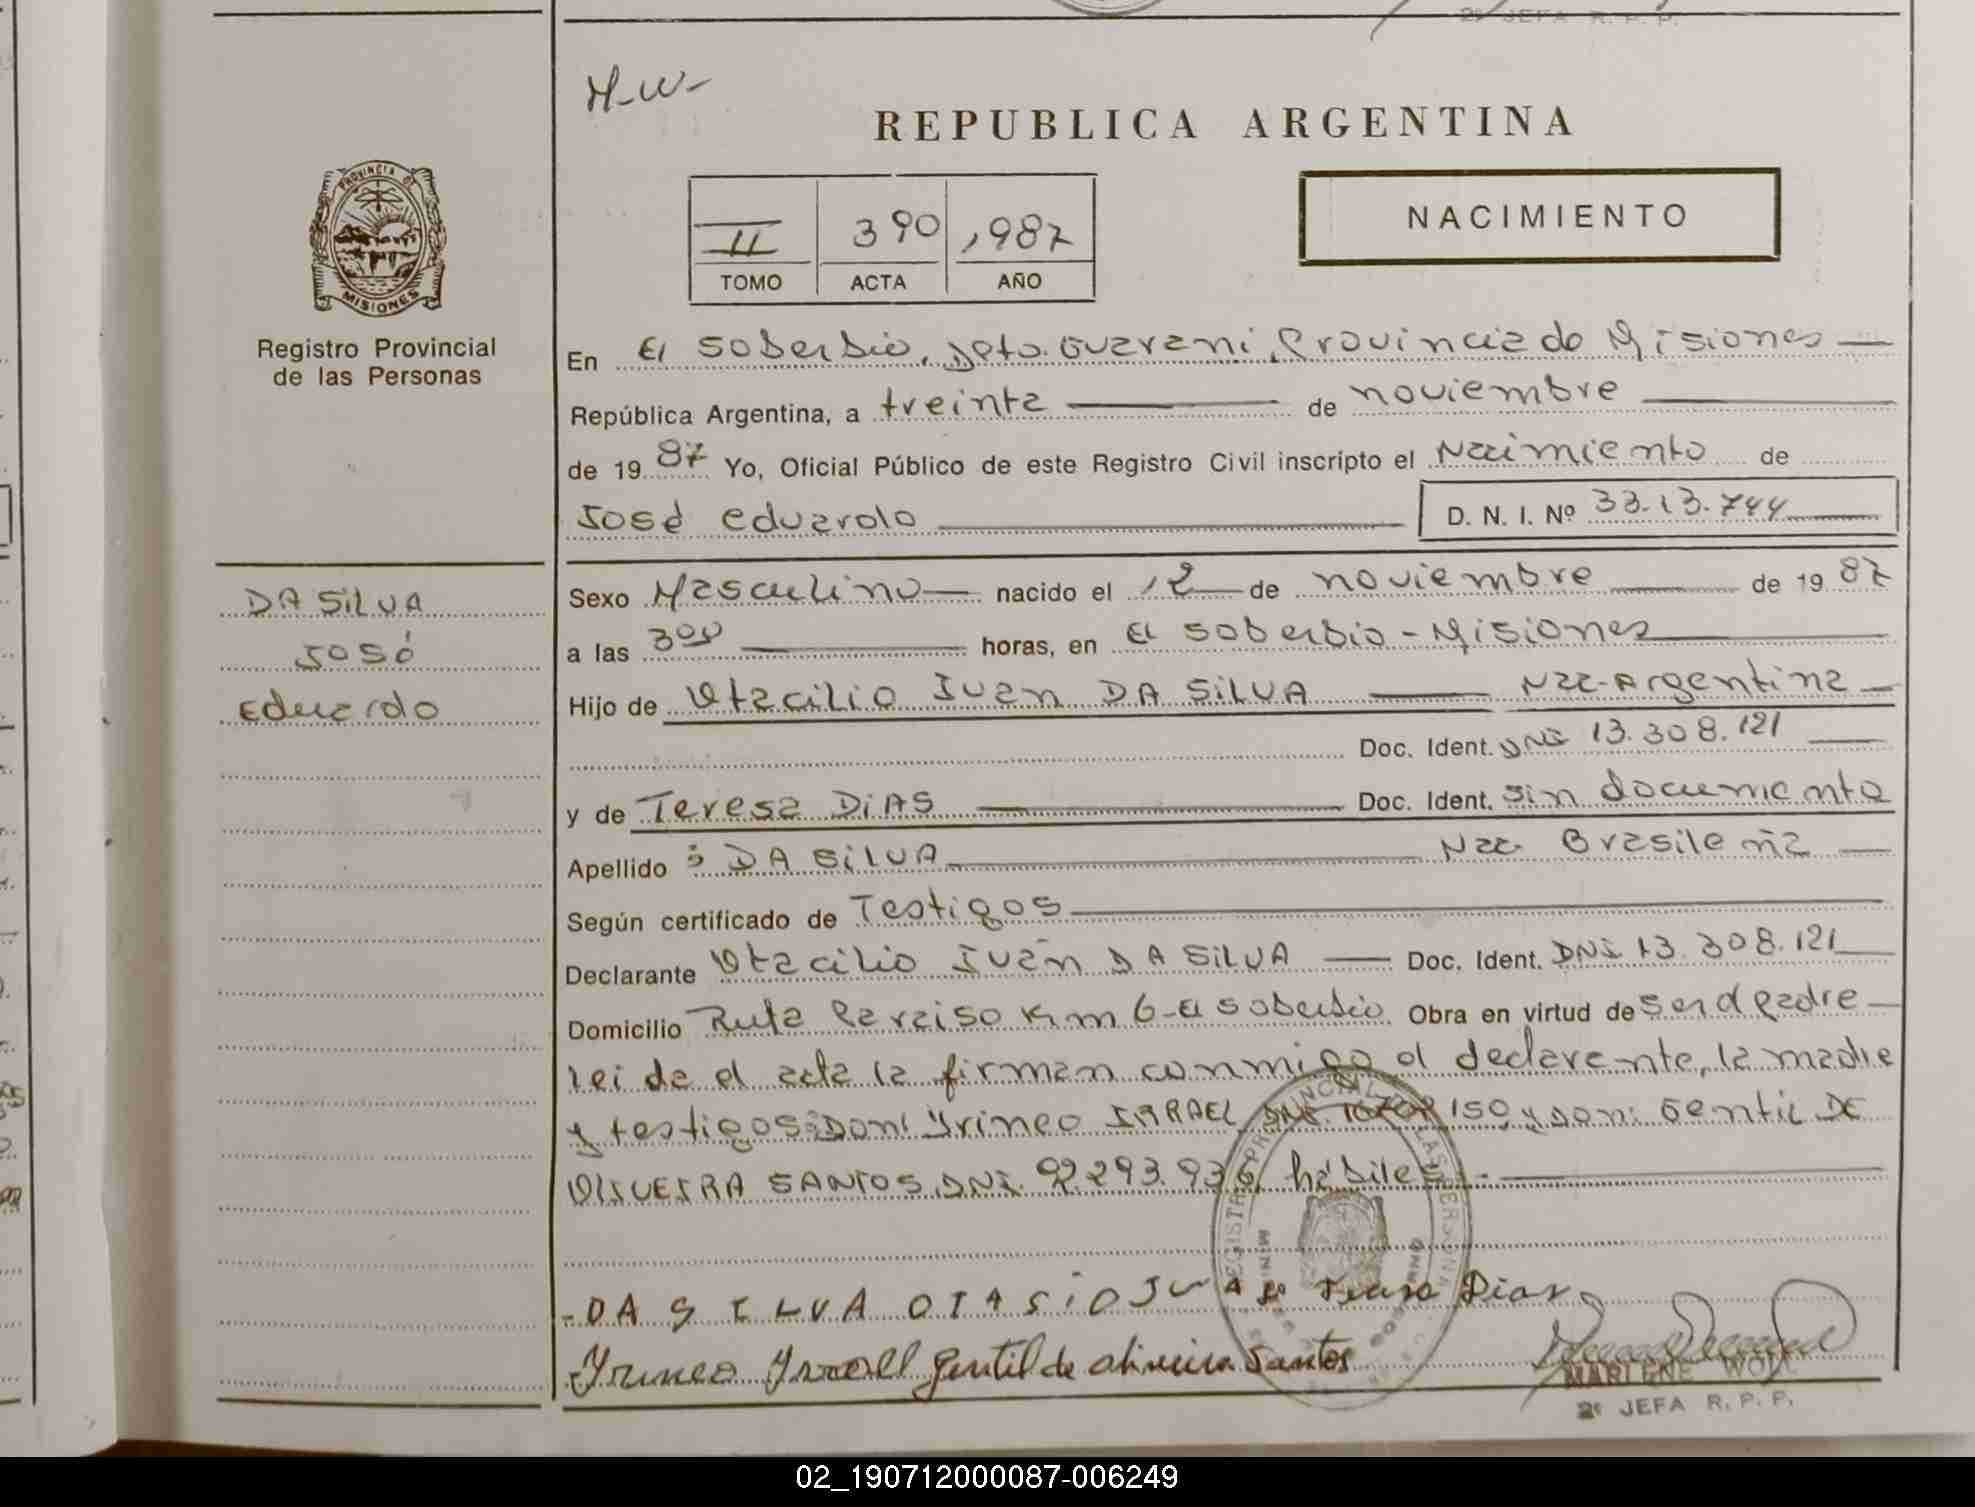 2º JEFA R. P. P.
M-W-
REPUBLICA ARGENTINA
PROVINCIA DE
MISIONES
II 390 1987
TOMO ACTA AÑO
NACIMIENTO
Registro Provincial
de las Personas
En El Soberbio, Dpto. Guarani, Provincia de Misiones
República Argentina, a treinta de noviembre
de 19 87 Yo, Oficial Público de este Registro Civil inscripto el Nacimiento de
José Eduardo D. N. I. Nº 33.13.744
DA SILVA
José
Eduardo
Sexo Masculino nacido el 12 de noviembre de 19 87
a las 3oo horas, en El Soberbio - Misiones
Hijo de Otacilio Juan DA SILVA Nac. Argentina
Doc. Ident. DNI 13.308.121
y de Teresa DIAS Doc. Ident. sin documento
Apellido : DA SILVA Nac. Brasileña
Según certificado de Testigos
Declarante Otacilio Juan DA SILVA Doc. Ident. DNI 13.308.121
Domicilio Ruta Paraiso Km 6 - El Soberbio. Obra en virtud de ser el padre
Leida el acta la firman conmigo el declarante, la madre
y testigos: Don: Yrineo ISRRAEL, DNI. y Don: Gentil DE
OLIVEIRA SANTOS, DNI. 92.293.936 hábiles.-
DA SILVA OTASIO JUAN Teresa Dias
Yrineo Ysrrael Gentil de oliveira Santos
MARLENE WOJ.
2º JEFA R. P. P.
02_190712000087-006249